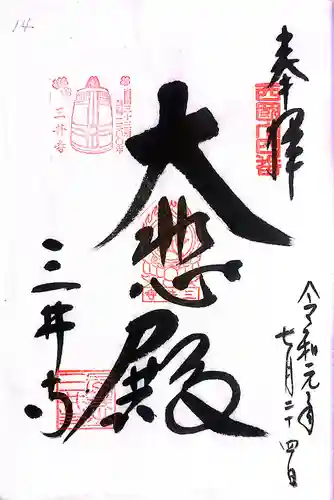 14
奉拝
西國十四番
大悲殿
三井寺
三井寺
令和元年
七月二十四日